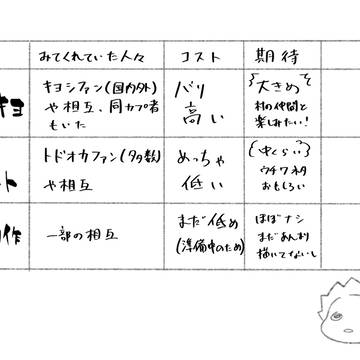 みてくれていた人々 コスト 期待
キヨ
キヨシファン(国内外)
や相互、同カプ者
もいた
バリ
高い
大きめ
村の仲間と
楽しみたい!
ト
トドオカファン(多数)
や相互
めっちゃ
低い
(中くらい)
ウチワネタ
おもしろい
作
一部の相互
まだ低め
(準備中のため)
ほぼナシ
まだあんまり
描いてないし